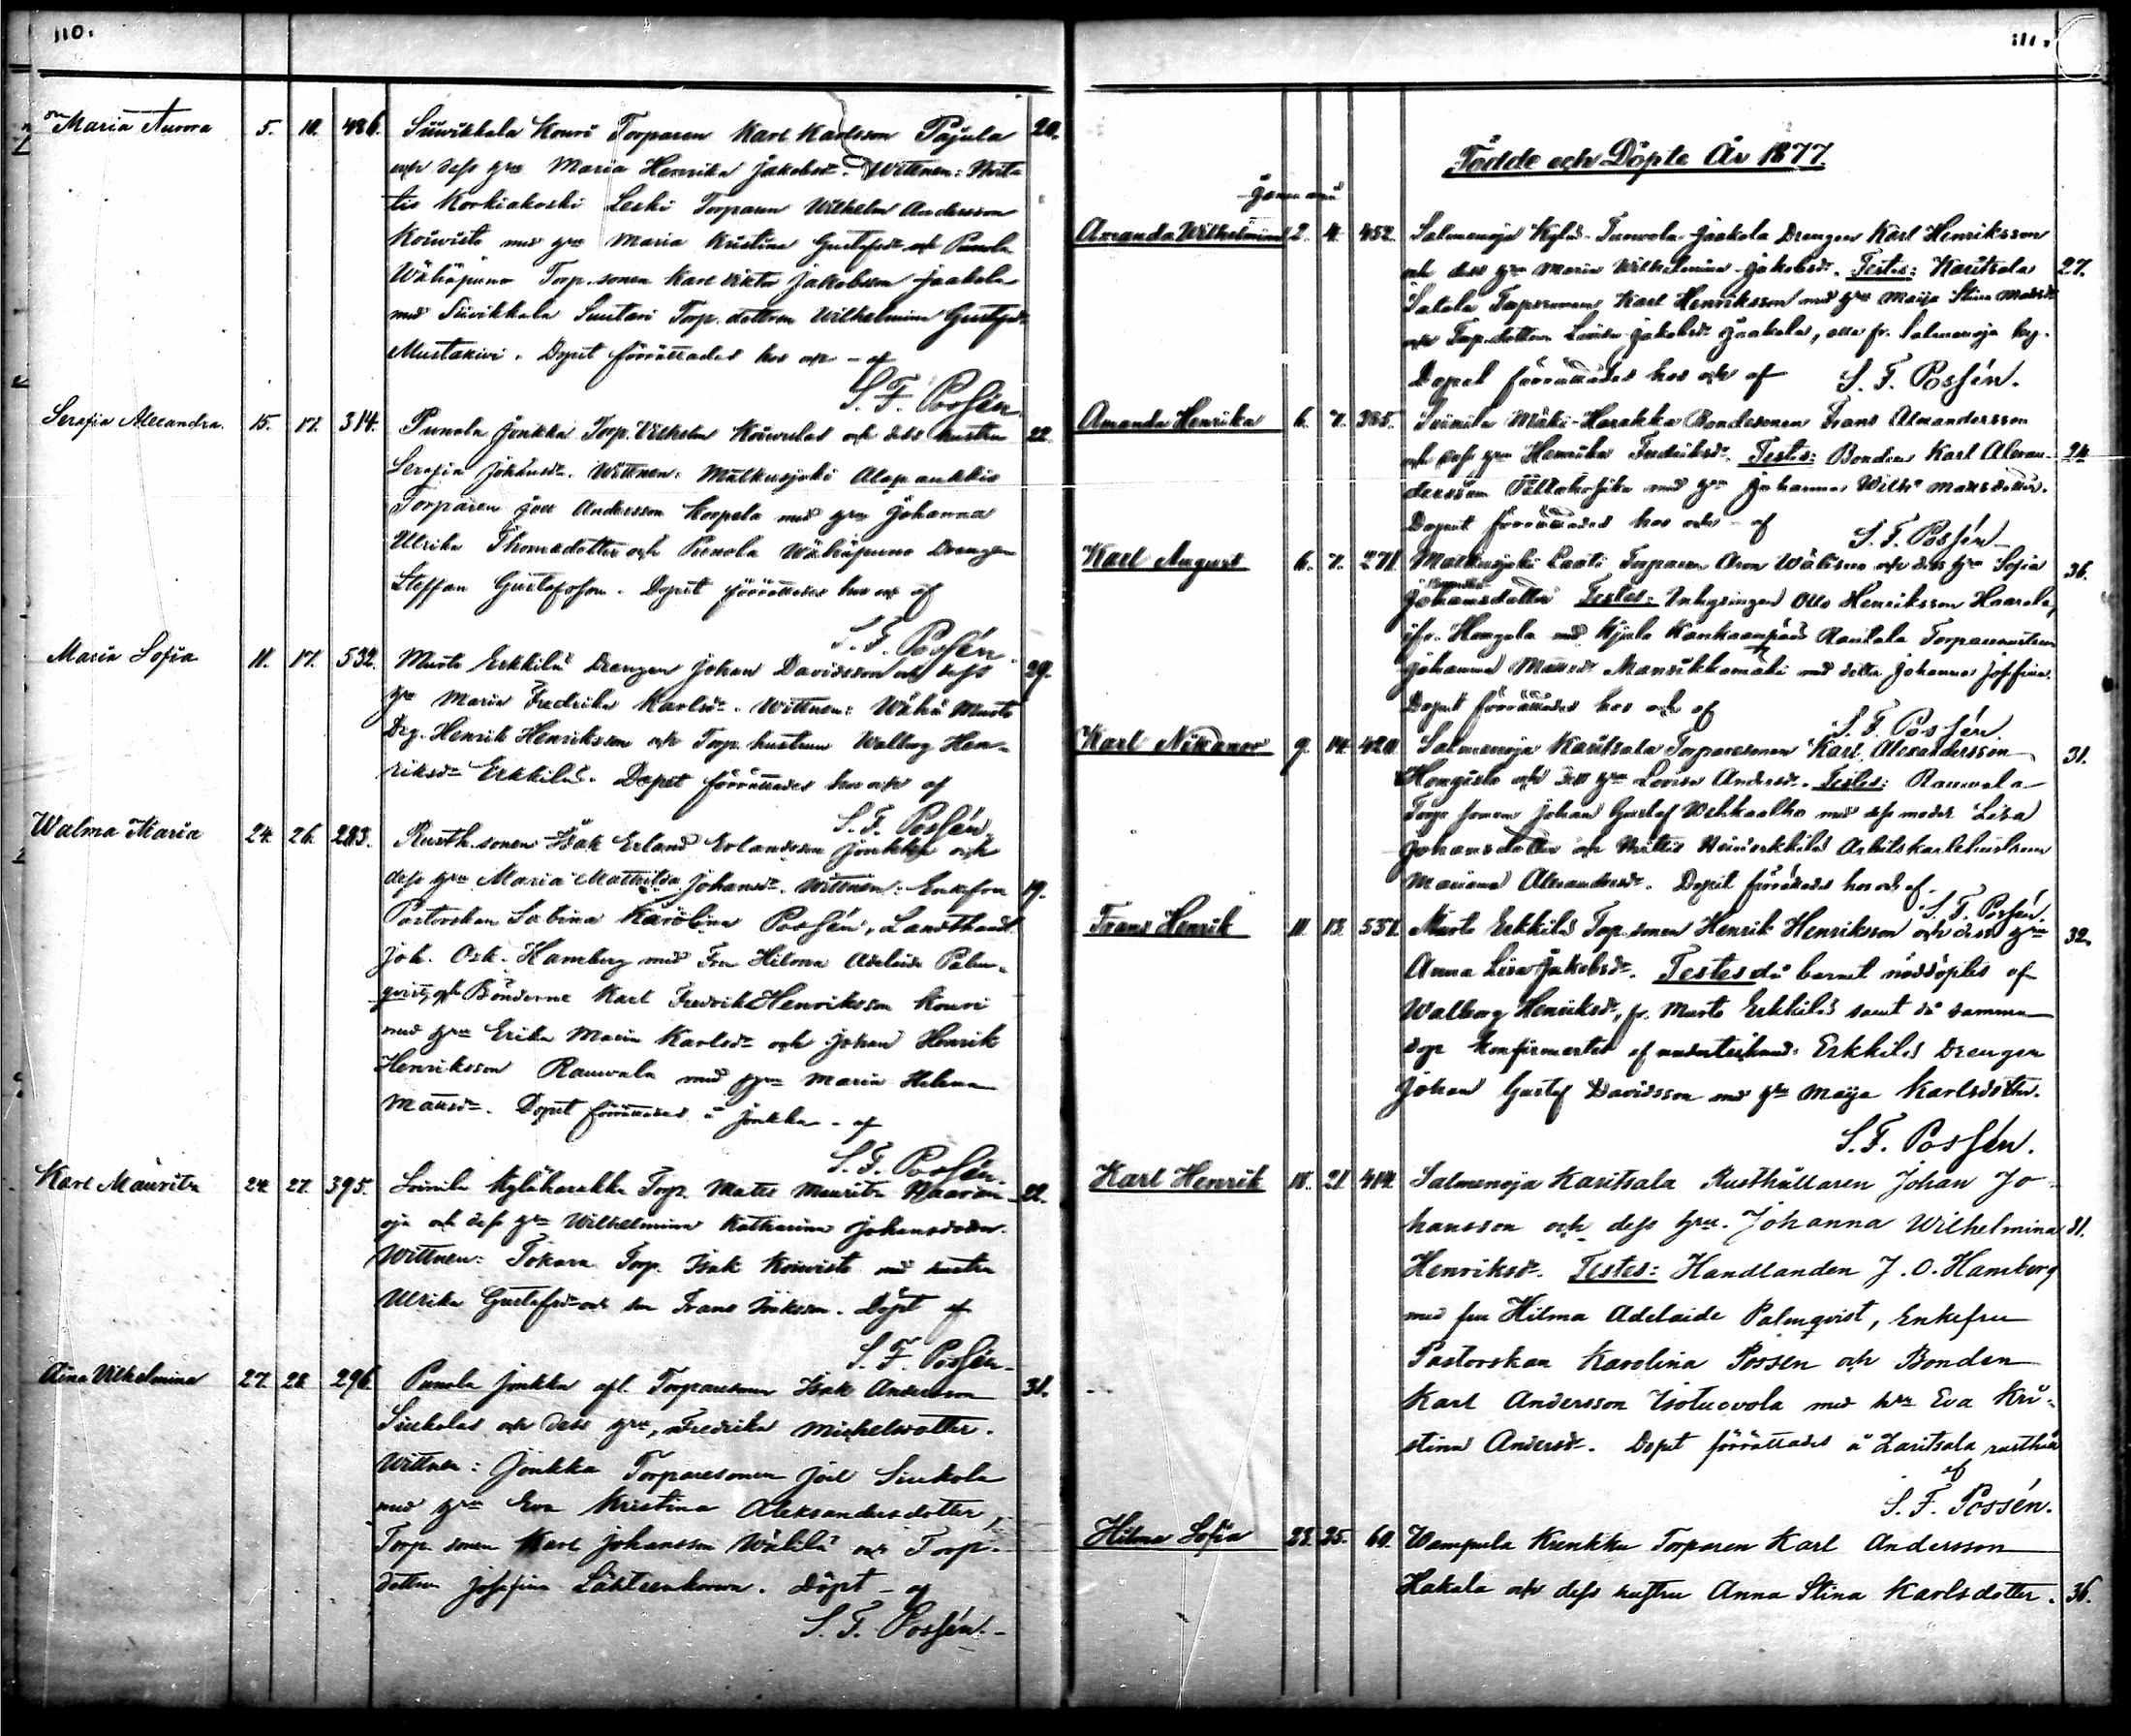 110.
Maria Aurora 5. 10. 486. Siivikkala Kouri Torparen Karl Karlsson Pajula 20.
och dess hru Maria Henrika Jakobsdr. Wittnen:
Korkiakoski Leski Torparen Wilhelm Andersson
Koivisto med hru Maria Kristina Gustafsdr och Punola
Wähäpuno Torp. sonen Karl Viktor Jakobsson Jaakola
med Siivikkala Suutari Torp. dottren Wilhelmina Gustafsdr
Mustakivi. Dopet förrättades hos och - af
S. F. Possén.
Serafia Alexandra. 15. 17. 314. Punola Jonkka Torp. Vilhelm och dess hustru 22.
Serafia Johansdr. Wittnen: Matkusjoki Alapaukkio
Torparen Joel Andersson Korpela med hru Johanna
Ulrika Thomsdotter och Punola Wähäpuno Drengen
Steffan Gustafsson. Dopet förrättades hos och af
S. F. Possén.
Maria Sofia 11. 17. 532. Murto Erkkilä Drengen Johan Davidsson och dess 29.
hru Maria Fredrika Karlsdr. Wittnen: Wähä Murto
Drg. Henrik Henriksson och Torp. hustrun Walborg Hen-
riksdr Erkkilä. Dopet förrättades hos och af
S. F. Possén.
Walma Maria 24. 26. 283. Rusth. sonen Isak Erland Erlandsson Jonkka och
dess hru Maria Mathilda Johansdr. Wittnen: Enkefru 19.
Pastorskan Sabina Karolina Possén, Landthandl.
Joh. Osk. Hamberg med Fru Hilma Adelaide Palm-
qvist, och Bönderne Karl Fredrik Henriksson Kouri
med hru Erika Maria Karlsdr och Johan Henrik
Henriksson Rauvala med hru Maria Helena
Mattsdr. Dopet förrättades å Jonkka - af
S. F. Possén.
Karl Mauritz 24. 27. 395. Loimila Kyläharakka Torp. Matts Mauritz Haavan- 22.
oja och dess hru Wilhelmina Katharina Johansdotter.
Wittnen: Torp. Isak Koivisto med hustru
Ulrika Gustafsdr och son Frans Isaksson. Döpt af
S. F. Possén.
Aina Vilhelmina 27. 28. 296. Punola Jonkka Torparesonen Isak Andersson 31.
och dess hru, Fredrika Michelsdotter.
Wittnen: Jonkka Torparesonen Joel
med hru Eva Kristina Aleksandersdotter,
Torp. sonen Karl Johansson Wälilä och Torp.
dottren Josefina Lähteenkorva. Döpt - af
S. F. Possén.
111.
Födde och Döpte År 1877.
Januari
Amanda Wilhelmina 2. 4. 452. Salmenoja Kylä-Tuovola-Jaakola Drengen Karl Henriksson
och dess hru Maria Wilhelmina Jakobsdr. Testes: Karitsala 27.
Satala Torparesonen Karl Henriksson med hru Maija Stina Mattsdr
och Torp. dottren Lovisa Jakobsdr Jaakola, alla fr. Salmenoja by.
Dopet förrättades hos och af S. F. Possén.
Amanda Henrika 6. 7. 385. Loimila Mäki-Harakka Bondesonen Frans Alexandersson
och dess hru Henrika Fredriksdr. Testes: Bonden Karl Alexan- 24.
dersson med hru Johanna Wilha Mattsdotter.
Dopet förrättades hos och - af S. F. Possén
Karl August 6. 7. 271. Matkusjoki Laati Torparen Aron och dess hru Sofia 36.
Johansdotter Testes: Inhysingen Otto Henriksson Haarala,
ifr. Hongola med Kjula Kankaanpää Rantala Torparehustrun
Johanna Mattsdr Mansikkamäki med dotter Johanna Josefina.
Dopet förrättades hos och af
S. F. Possén.
Karl Nikanor 9. 14. 420. Salmenoja Karitsala Torparesonen Karl Alexandersson 31.
Hongisto och dess hru Lovisa Andersdr. Testes: Rauvala
Torp sonen Johan Gustaf med dess moder Lisa
Johansdotter och Arbetskarlehustrun
Mariana Alexandersdr. Dopet förrättades hos och af
S. F. Possén.
Frans Henrik 11. 13. 531. Murto Erkkilä Torp. sonen Henrik Henriksson och dess hru 32.
Anna Lisa Jakobsdr. Testes då barnet nöddöptes af
Walborg Henriksdr, fr. Murto Erkkilä samt då samma
dop konfirmertes af undertecknad: Erkkilä Drengen
Johan Gustaf Davidsson med hru Maija Karlsdotter.
S. F. Possén.
Karl Henrik 18. 21. 414. Salmenoja Karitsala Rusthållaren Johan Jo-
hansson och dess hru. Johanna Wilhelmina 31.
Henriksdr. Testes: Handlanden J. O. Hamberg
med fru Hilma Adelaide Palmqvist, Enkefru
Pastorskan Karolina Possén och Bonden
Karl Andersson Isotuovola med hru Eva Kri-
stina Andersdr. Dopet förrättades å Karitsala rusthåll
af
S. F. Possén.
Hilma Sofia 23. 25. 60. Wampula Kunkku Torparen Karl Andersson
Hakala och dess hustru Anna Stina Karlsdotter. 36.